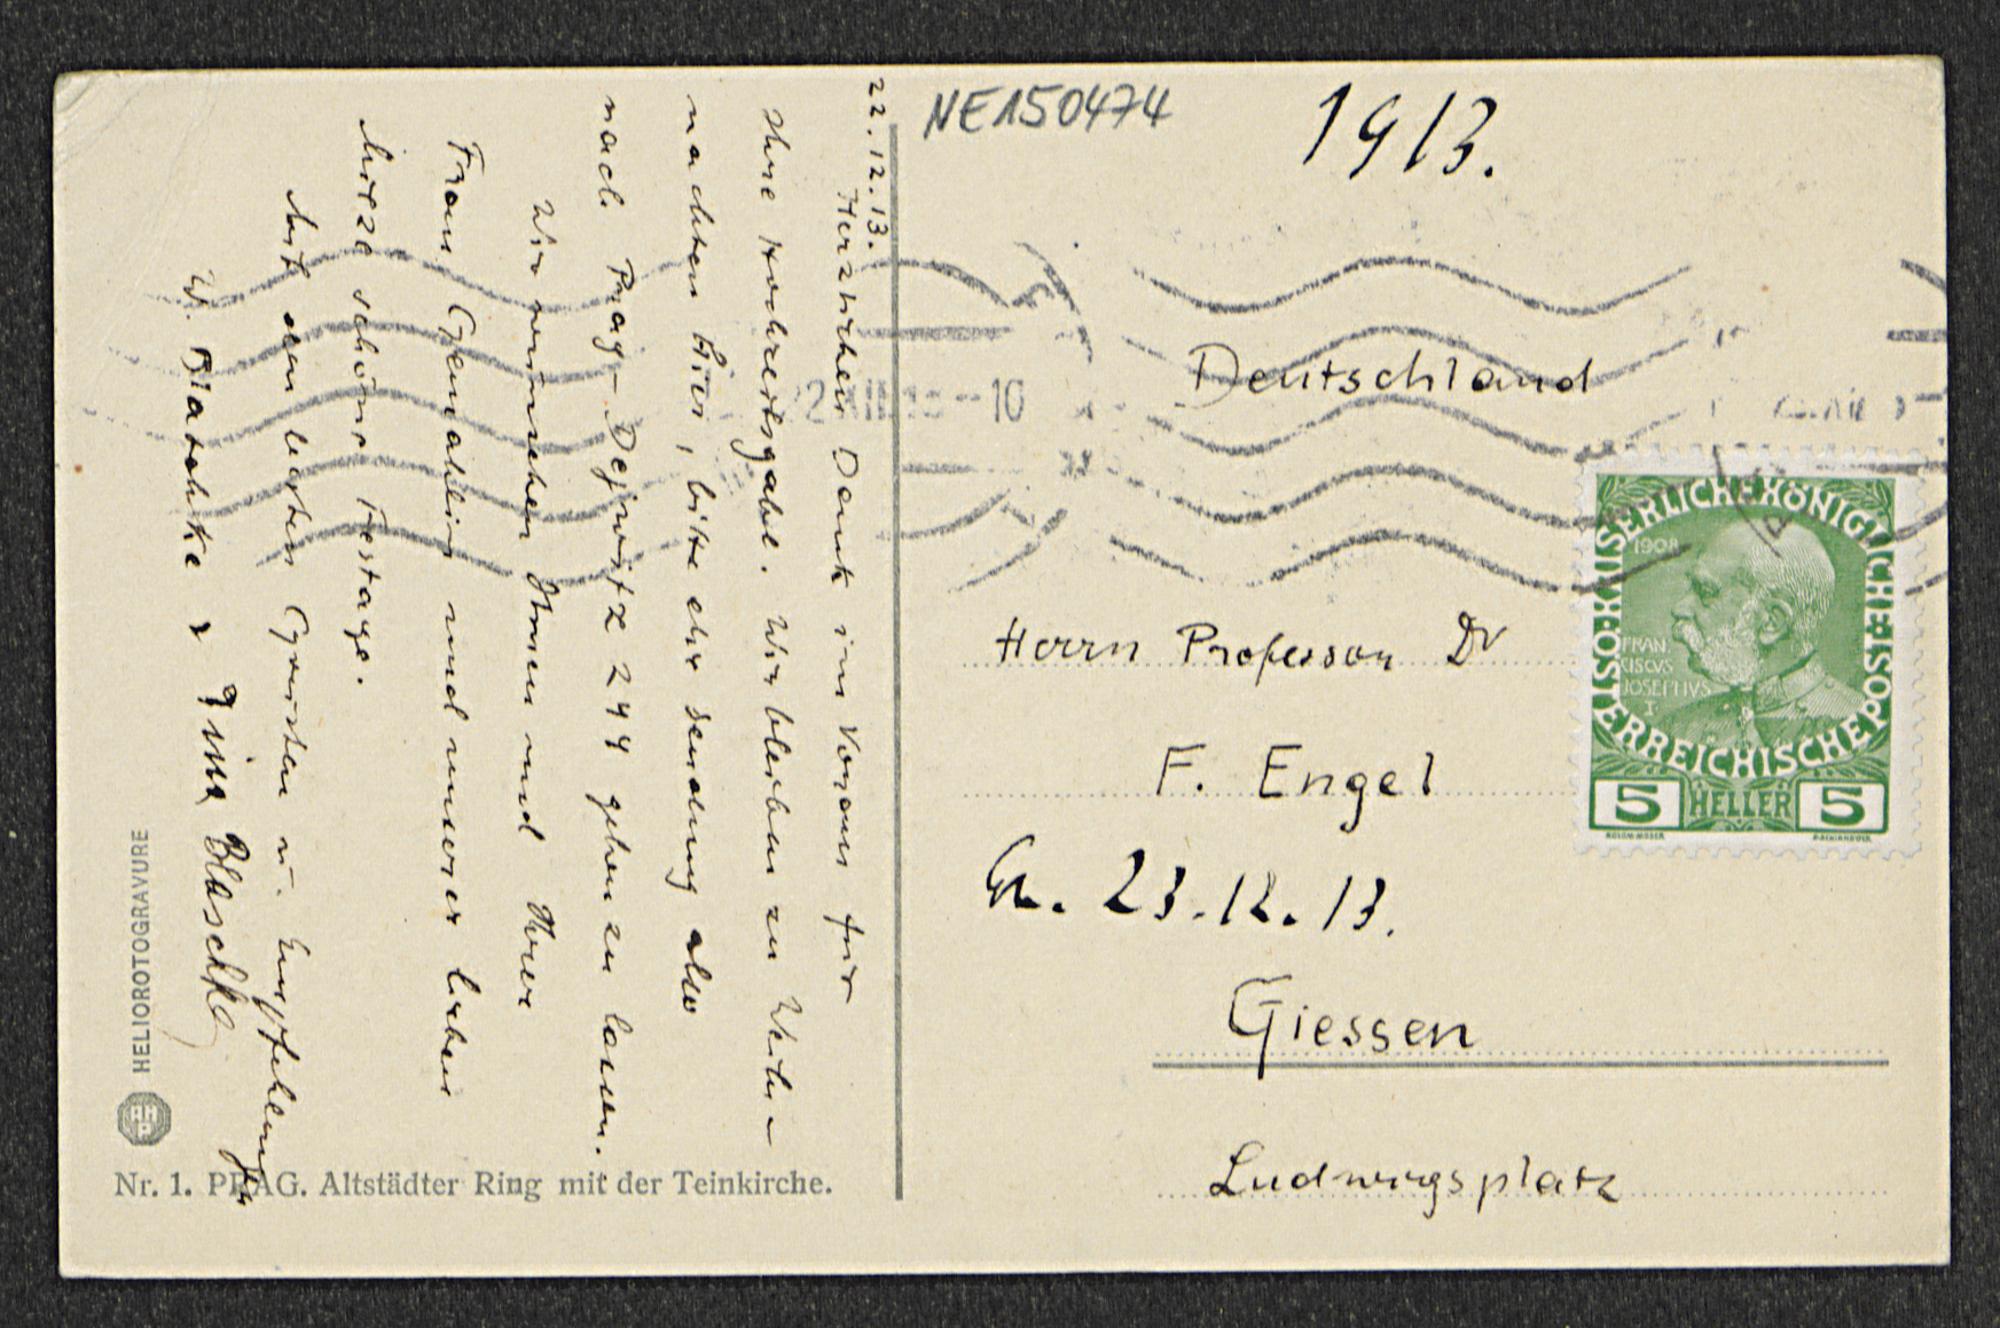 22.12.13.
Herzlichen Dank im Voraus für
Ihre Hochzeitsgabe. Wir bleiben zu Weih-
nachten hier, bitte die Sendung also
nach Prag-Dejwitz 244 gehen zu lassen.
Wir wünschen Ihnen und Ihrer
Frau Gemahlin und unserer lieben
schöne Festtage.
Mit den besten Grüssen u. Empfehlungen
W. Blaschke u Blaschke
HELIOROTOGRAVURE
Nr. 1. PRAG. Altstädter Ring mit der Teinkirche.
NE150474
1913.
Deutschland
Herrn Professor Dr
F. Engel
23.12.13.
Giessen
Ludwigsplatz
KAISERLICHE KÖNIGLICHE
ÖSTERREICHISCHE POST
1908
FRAN
CISCVS
JOSEPHVS
I
5 HELLER 5